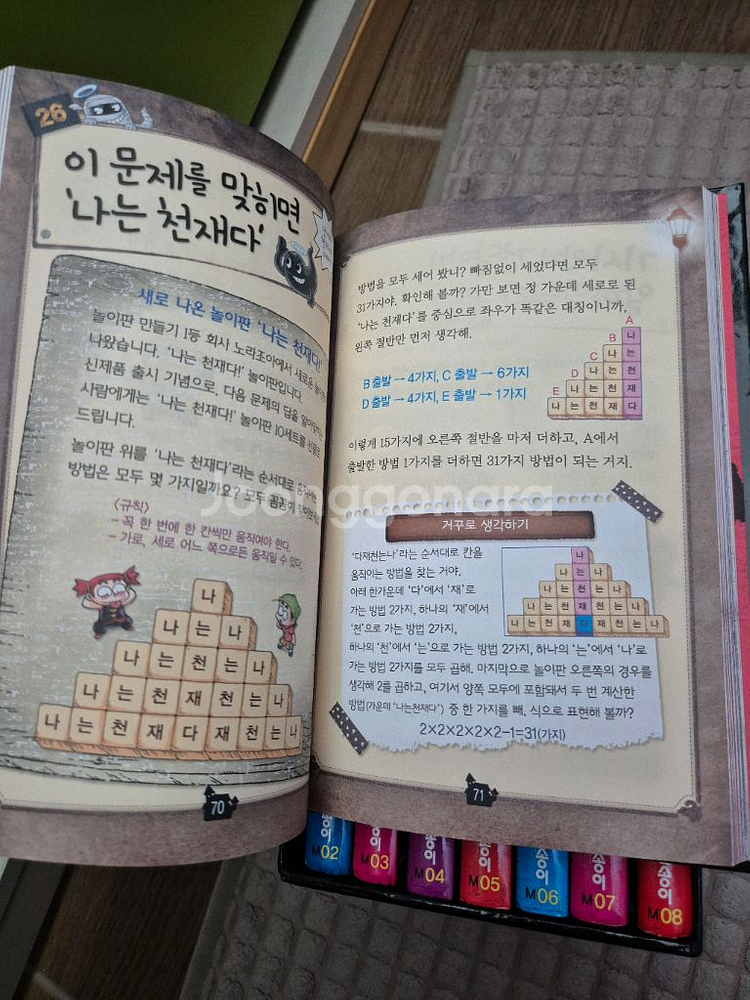 26
이 문제를 맞히면
'나는 천재다'
새로 나온 놀이판 '나는 천재다!
놀이판 만들기 1등 회사 노라조아에서 새로운
나왔습니다. '나는 천재다!' 놀이판입니다.
신제품 출시 기념으로, 다음 문제의 답을
사람에게는 '나는 천재다!' 놀이판 10세트를
드립니다.
놀이판 위를 '나는 천재다'라는 순서대로
방법은 모두 몇 가지일까요? 모두
<규칙>
- 꼭 한 번에 한 칸씩만 움직여야 한다.
- 가로, 세로 어느 쪽으로든 움직일 수 있다.
나
나 는 나
나 는 천 는 나
나 는 천 재 천 는 나
나 는 천 재 다 재 천 는 나
70
방법을 모두 세어 봤니? 빠짐없이 세었다면 모두
31가지야. 확인해 볼까? 가만 보면 정 가운데 세로로 된
'나는 천재다'를 중심으로 좌우가 똑같은 대칭이니까,
왼쪽 절반만 먼저 생각해.
B 출발 → 4가지, C 출발 → 6가지
D 출발 → 4가지, E 출발 → 1가지
A
B 나
C 나 는
D 나 는 천
E 나 는 천 재
나 는 천 재 다
이렇게 15가지에 오른쪽 절반을 마저 더하고, A에서
출발한 방법 1가지를 더하면 31가지 방법이 되는 거지.
거꾸로 생각하기
'다재천는나'라는 순서대로 칸을
움직이는 방법을 찾는 거야.
아래 한가운데 '다'에서 '재'로
가는 방법 2가지, 하나의 '재'에서
'천'으로 가는 방법 2가지,
하나의 '천'에서 '는'으로 가는 방법 2가지, 하나의 '는'에서 '나'로
가는 방법 2가지를 모두 곱해. 마지막으로 놀이판 오른쪽의 경우를
생각해 2를 곱하고, 여기서 양쪽 모두에 포함돼서 두 번 계산한
방법(가운데 '나는천재다') 중 한 가지를 빼. 식으로 표현해 볼까?
2×2×2×2×2−1=31(가지)
나
나 는 나
나 는 천 는 나
나 는 천 재 천 는 나
나 는 천 재 다 재 천 는 나
71
Joonggonara
M02
M03
M04
M05
M06
M07
M08